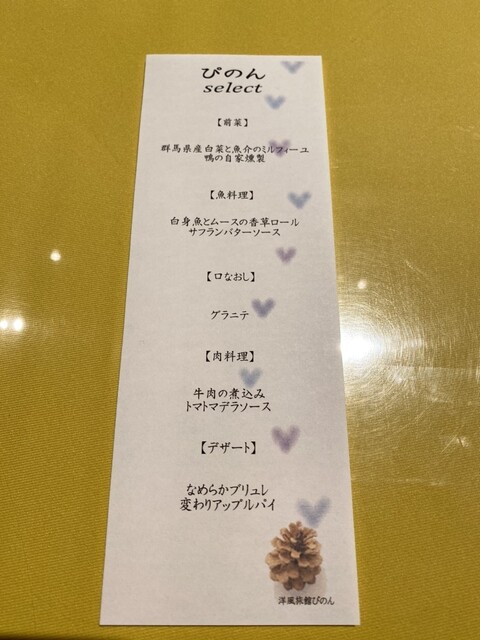 ぴのん
select
【前菜】
群馬県産白菜と魚介のミルフィーユ
鴨の自家燻製
【魚料理】
白身魚とムースの香草ロール
サフランバターソース
【口なおし】
グラニテ
【肉料理】
牛肉の煮込み
トマトマデラソース
【デザート】
なめらかブリュレ
変わりアップルパイ
洋風旅館ぴのん